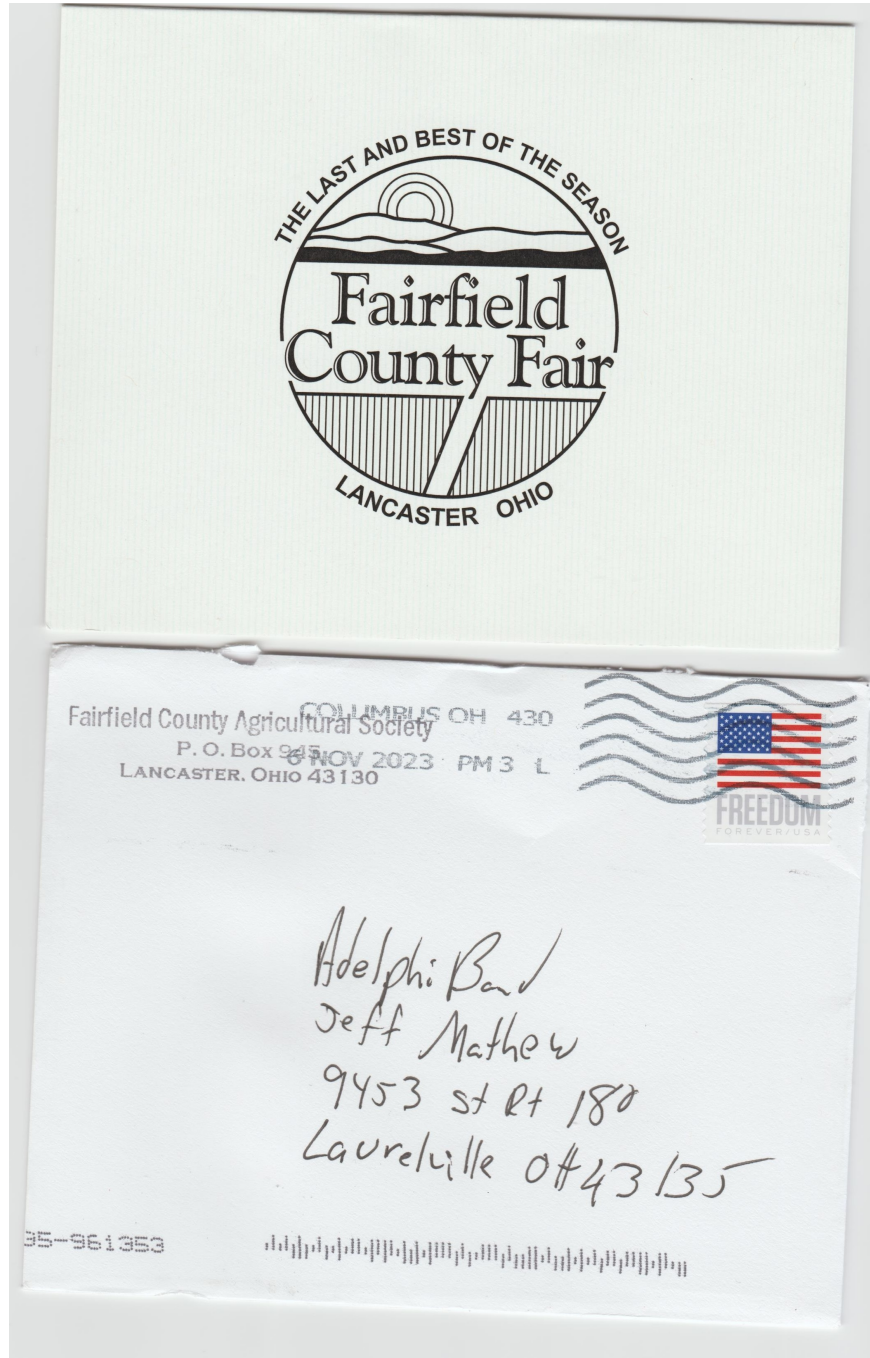 THE LAST AND BEST OF THE SEASON
Fairfield
County Fair
LANCASTER OHIO
Fairfield County Agricultural Society
P. O. Box 945
LANCASTER, OHIO 43130
COLUMBUS OH 430
6 NOV 2023 PM 3 L
FREEDOM
FOREVER/USA
Adelphi Band
Jeff Mathew
9453 St Rt 180
Laurelville OH 43135
35-961353